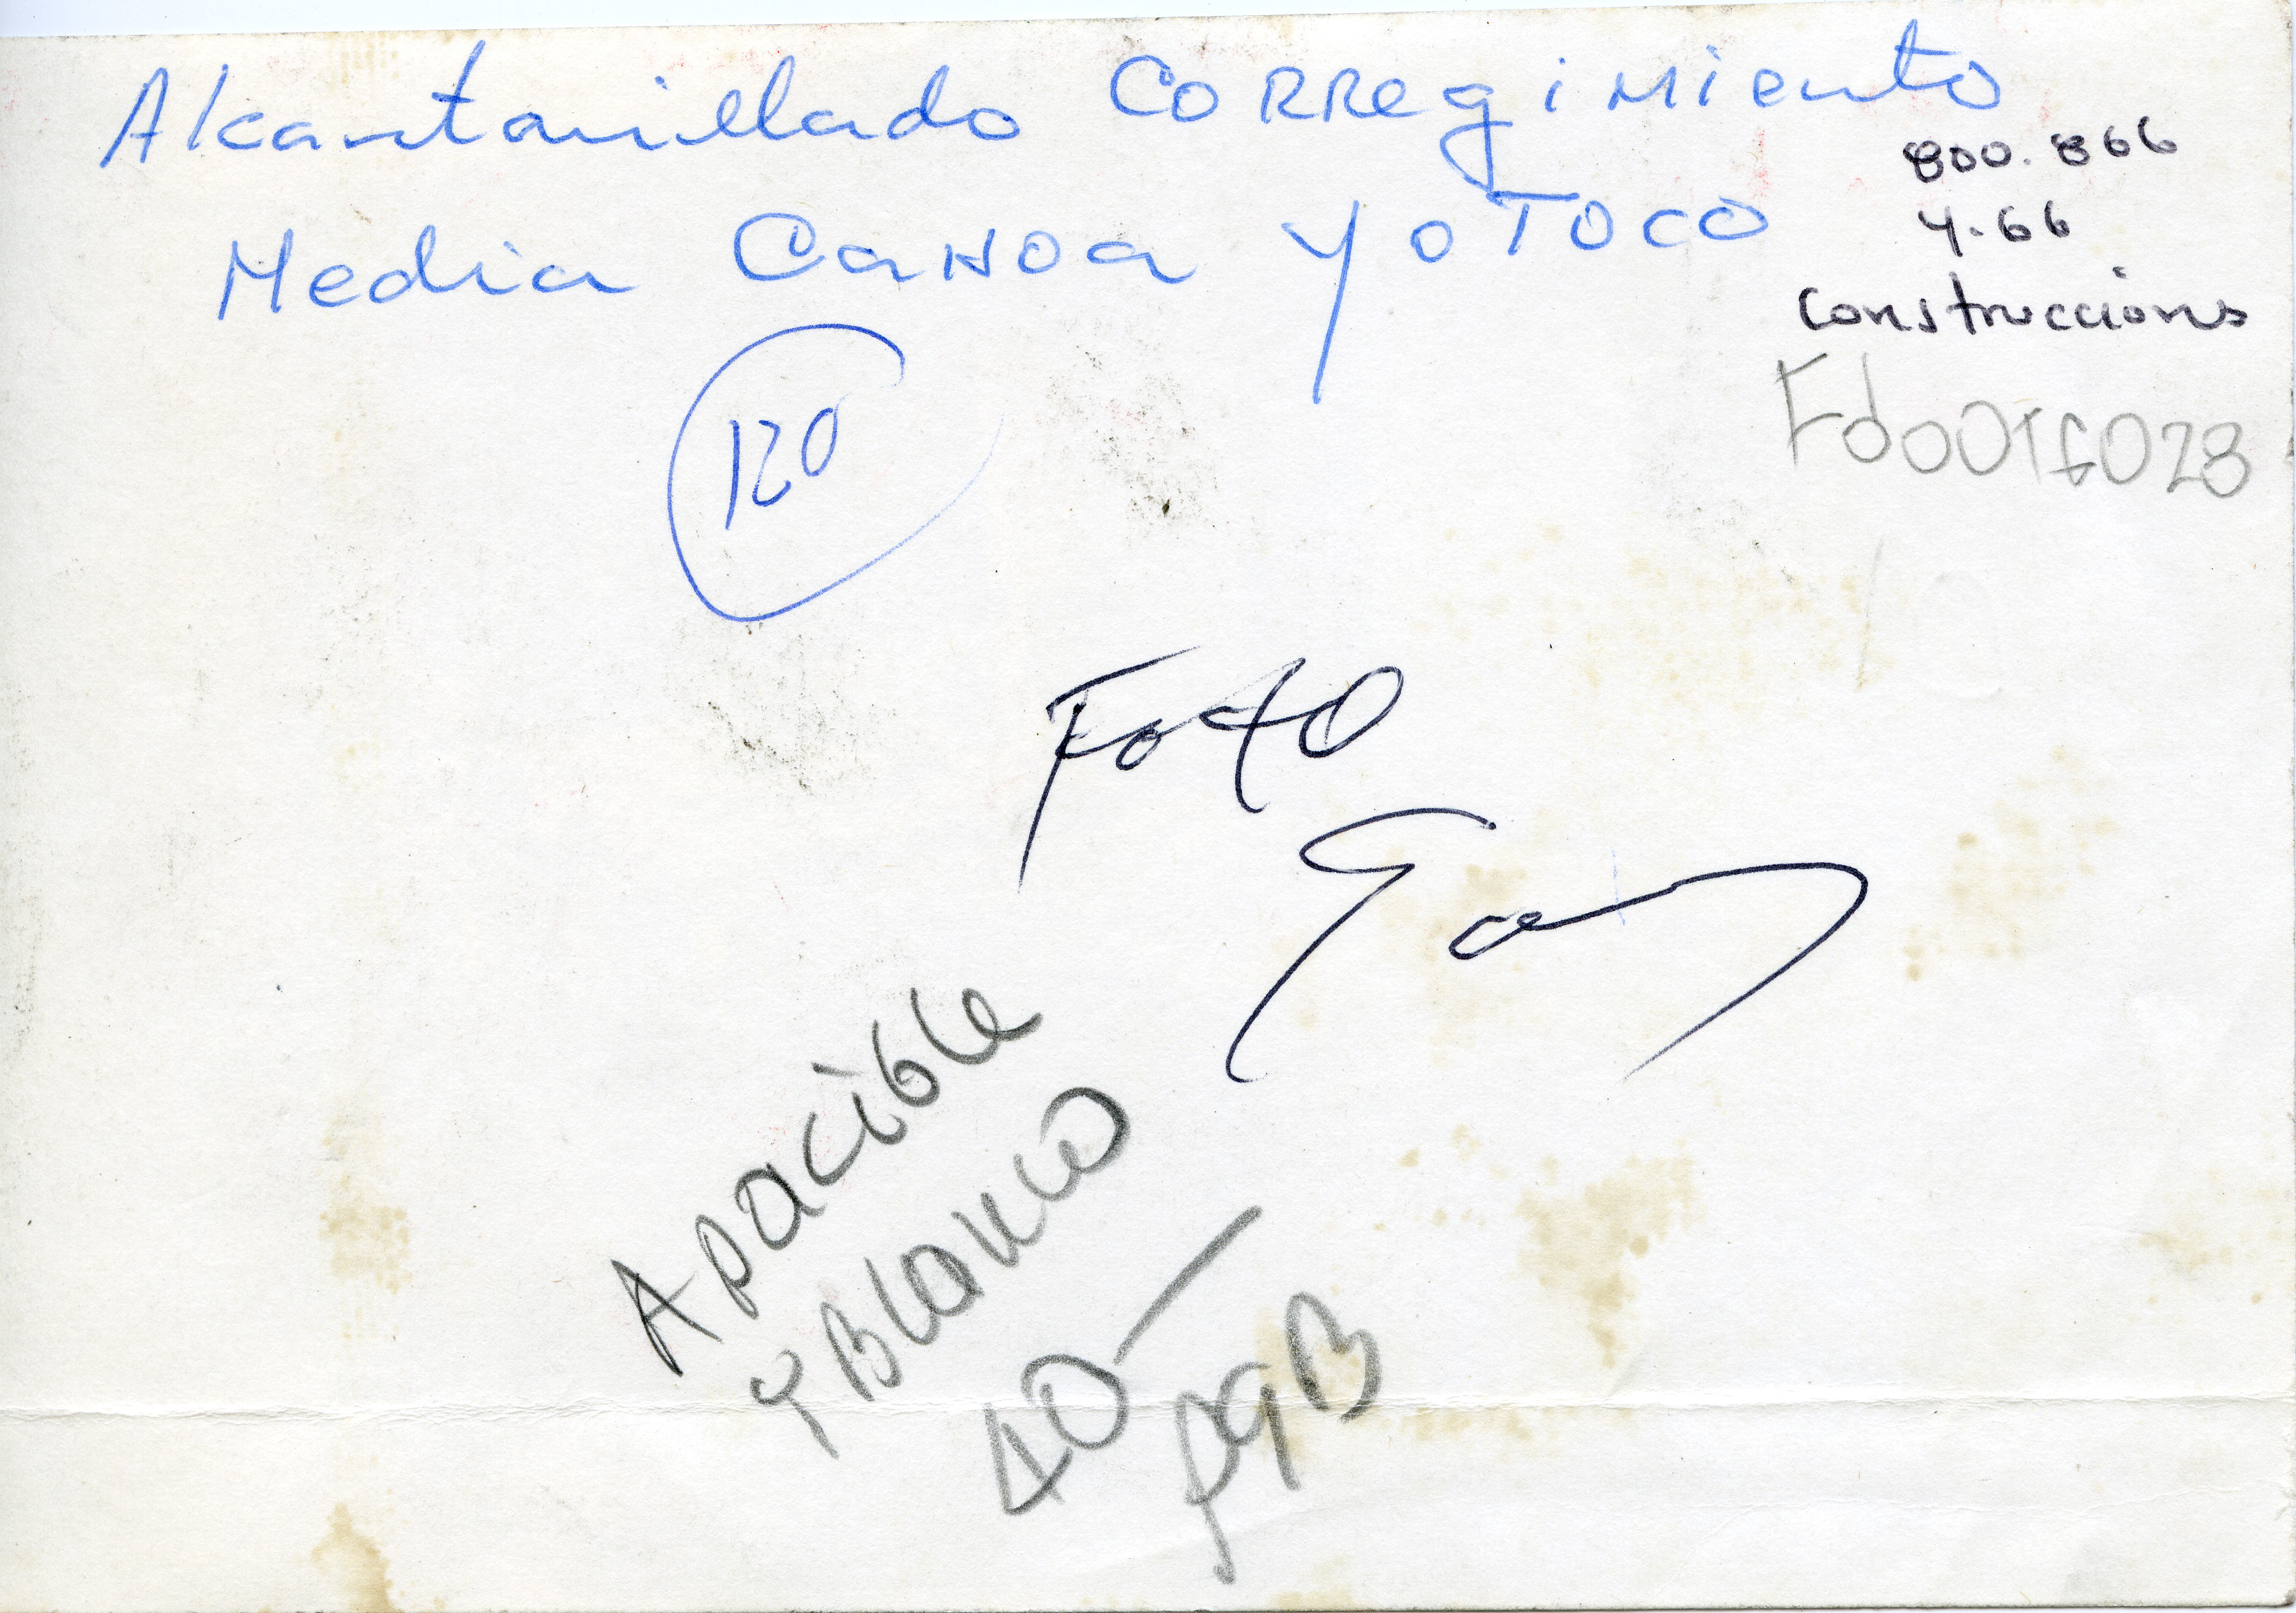 Alcantarillado Corregimiento
Media Canoa Yotoco
800.866
4.66
Construcciones
Fd001G028
120
Foto
Apacible
y Blanco
40